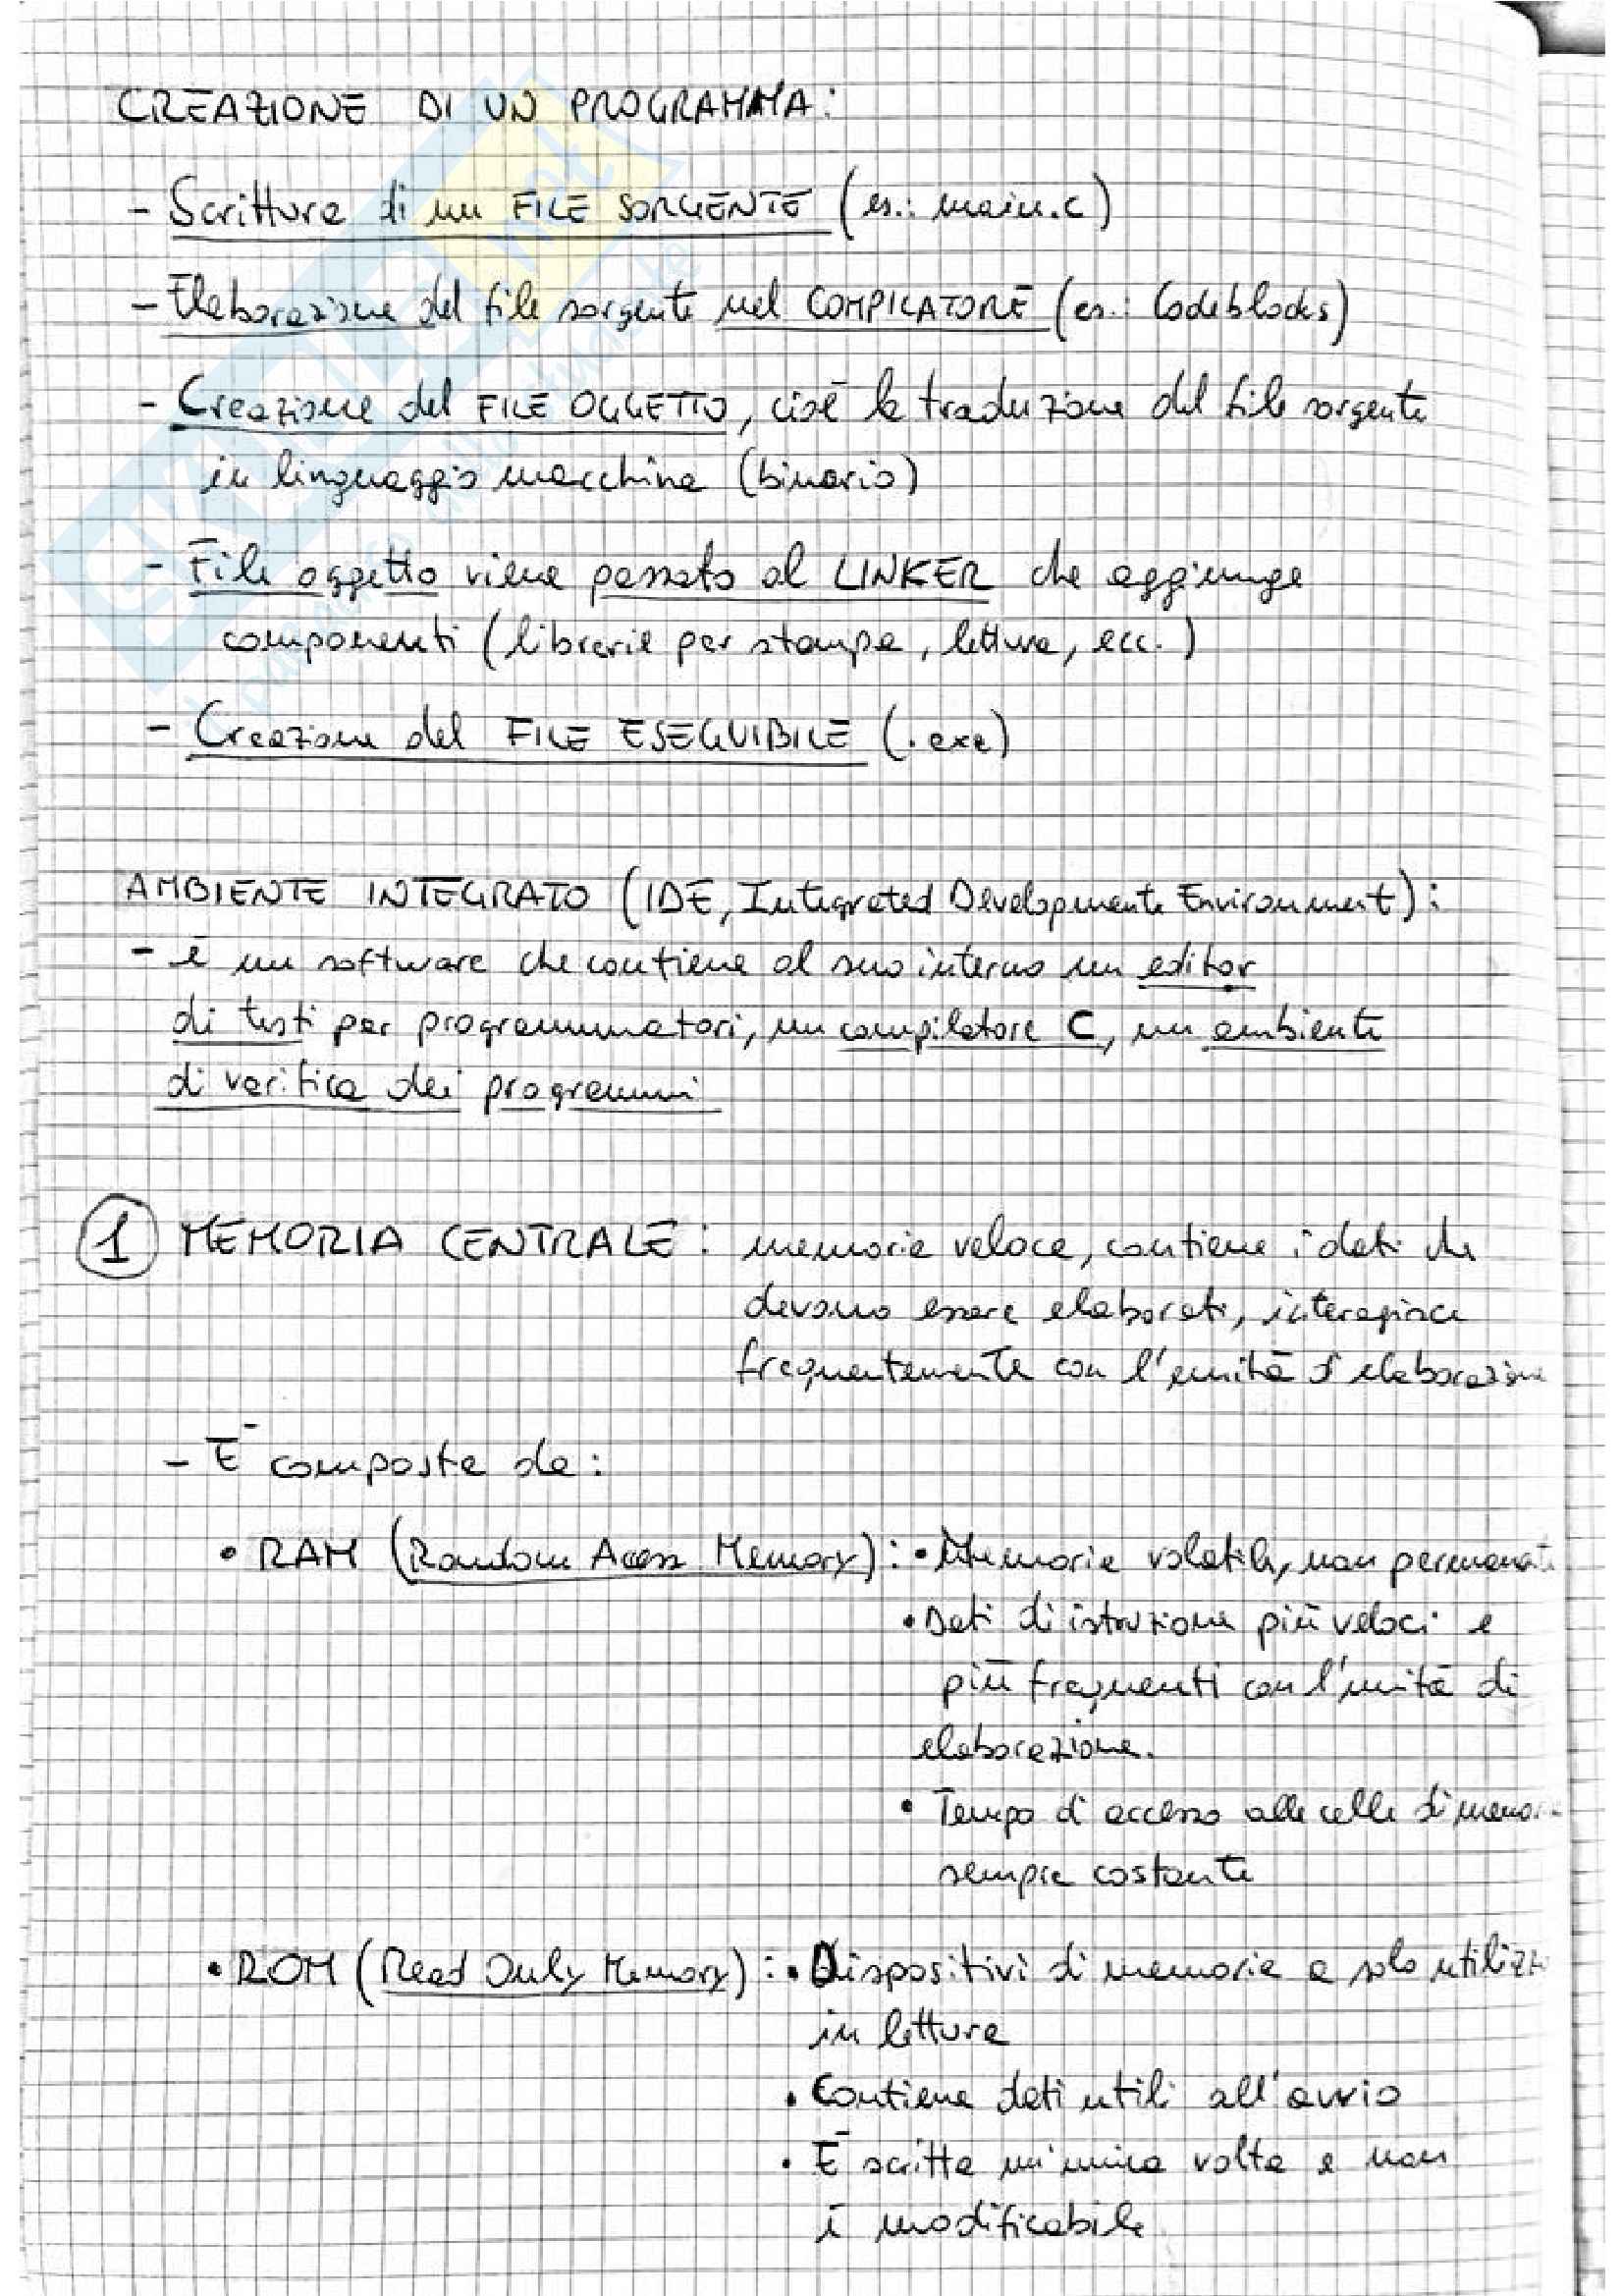 CREAZIONE DI UN PROGRAMMA:
- Scrittura di un FILE SORGENTE (es.: main.c)
- Elaborazione del file sorgente nel COMPILATORE (es.: Codeblocks)
- Creazione del FILE OGGETTO, cioè la traduzione del file sorgente
in linguaggio macchina (binario)
- File oggetto viene passato al LINKER che aggiunge
componenti (librerie per stampa, lettura, ecc.)
- Creazione del FILE ESEGUIBILE (.exe)
AMBIENTE INTEGRATO (IDE, Integrated Developmente Environment):
- è un software che contiene al suo interno un editor
di testi per programmatori, un compilatore C, un ambiente
di verifica dei programmi
1 MEMORIA CENTRALE: memoria veloce, contiene i dati che
devono essere elaborati, interagisce
frequentemente con l'unità d'elaborazione
- È composta da:
• RAM (Random Access Memory): • Memoria volatile, non permanent
• Dati di istruzione più veloci e
più frequenti con l'unità di
elaborazione.
• Tempo di accesso alle celle di memor
sempre costante
• ROM (Read Only Memory): • Dispositivi di memoria a solo utilizz
in lettura
• Contiene dati utili all'avvio
• È scritta un'unica volta e non
è modificabile